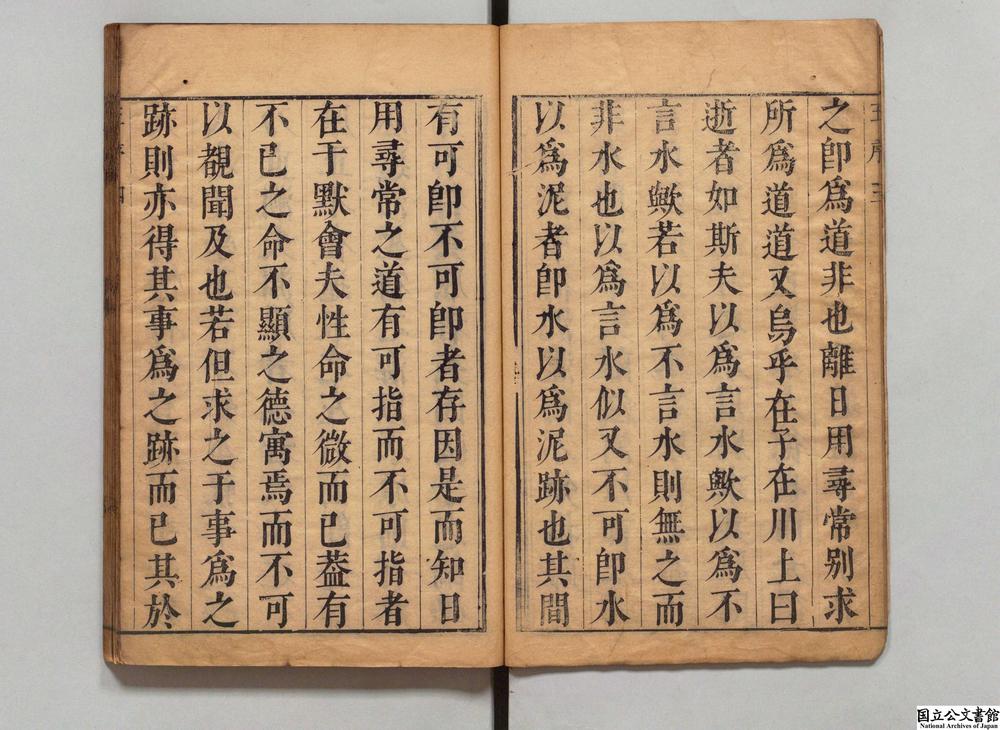 之卽爲道非也離日用尋常别求
所爲道道又烏乎在子在川上曰
逝者如斯夫以爲言水歟以爲不
言水歟若以爲不言水則無之而
非水也以爲言水似又不可卽水
以爲泥者卽水以爲泥跡也其間
有可卽不可卽者存因是而知日
用尋常之道有可指而不可指者
在于默會夫性命之微而已葢有
不已之命不顯之德寓焉而不可
以覩聞及也若但求之于事爲之
跡則亦得其事爲之跡而已其於
国立公文書館
National Archives of Japan